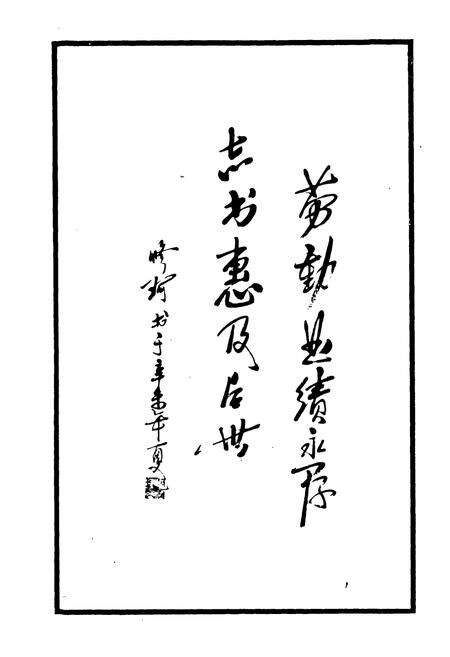 劳動业绩永存
志书惠及后世
书于辛未年夏